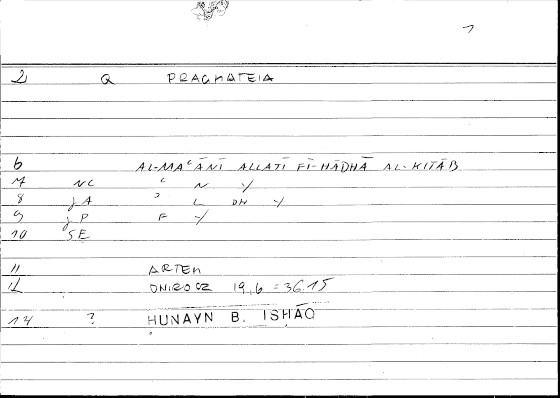 2 Q PRAGMATEIA
6 AL-MAʿĀNĪ ALLATĪ FĪ-HĀDHĀ AL-KITĀB
7 NC ʿ N Y
8 jA ʾ L DH Y
9 jP F Y
10 SE
11 ARTEM
12 ONIROCR 19,6 = 36.15
14 ? ḤUNAYN B. ISḤĀQ